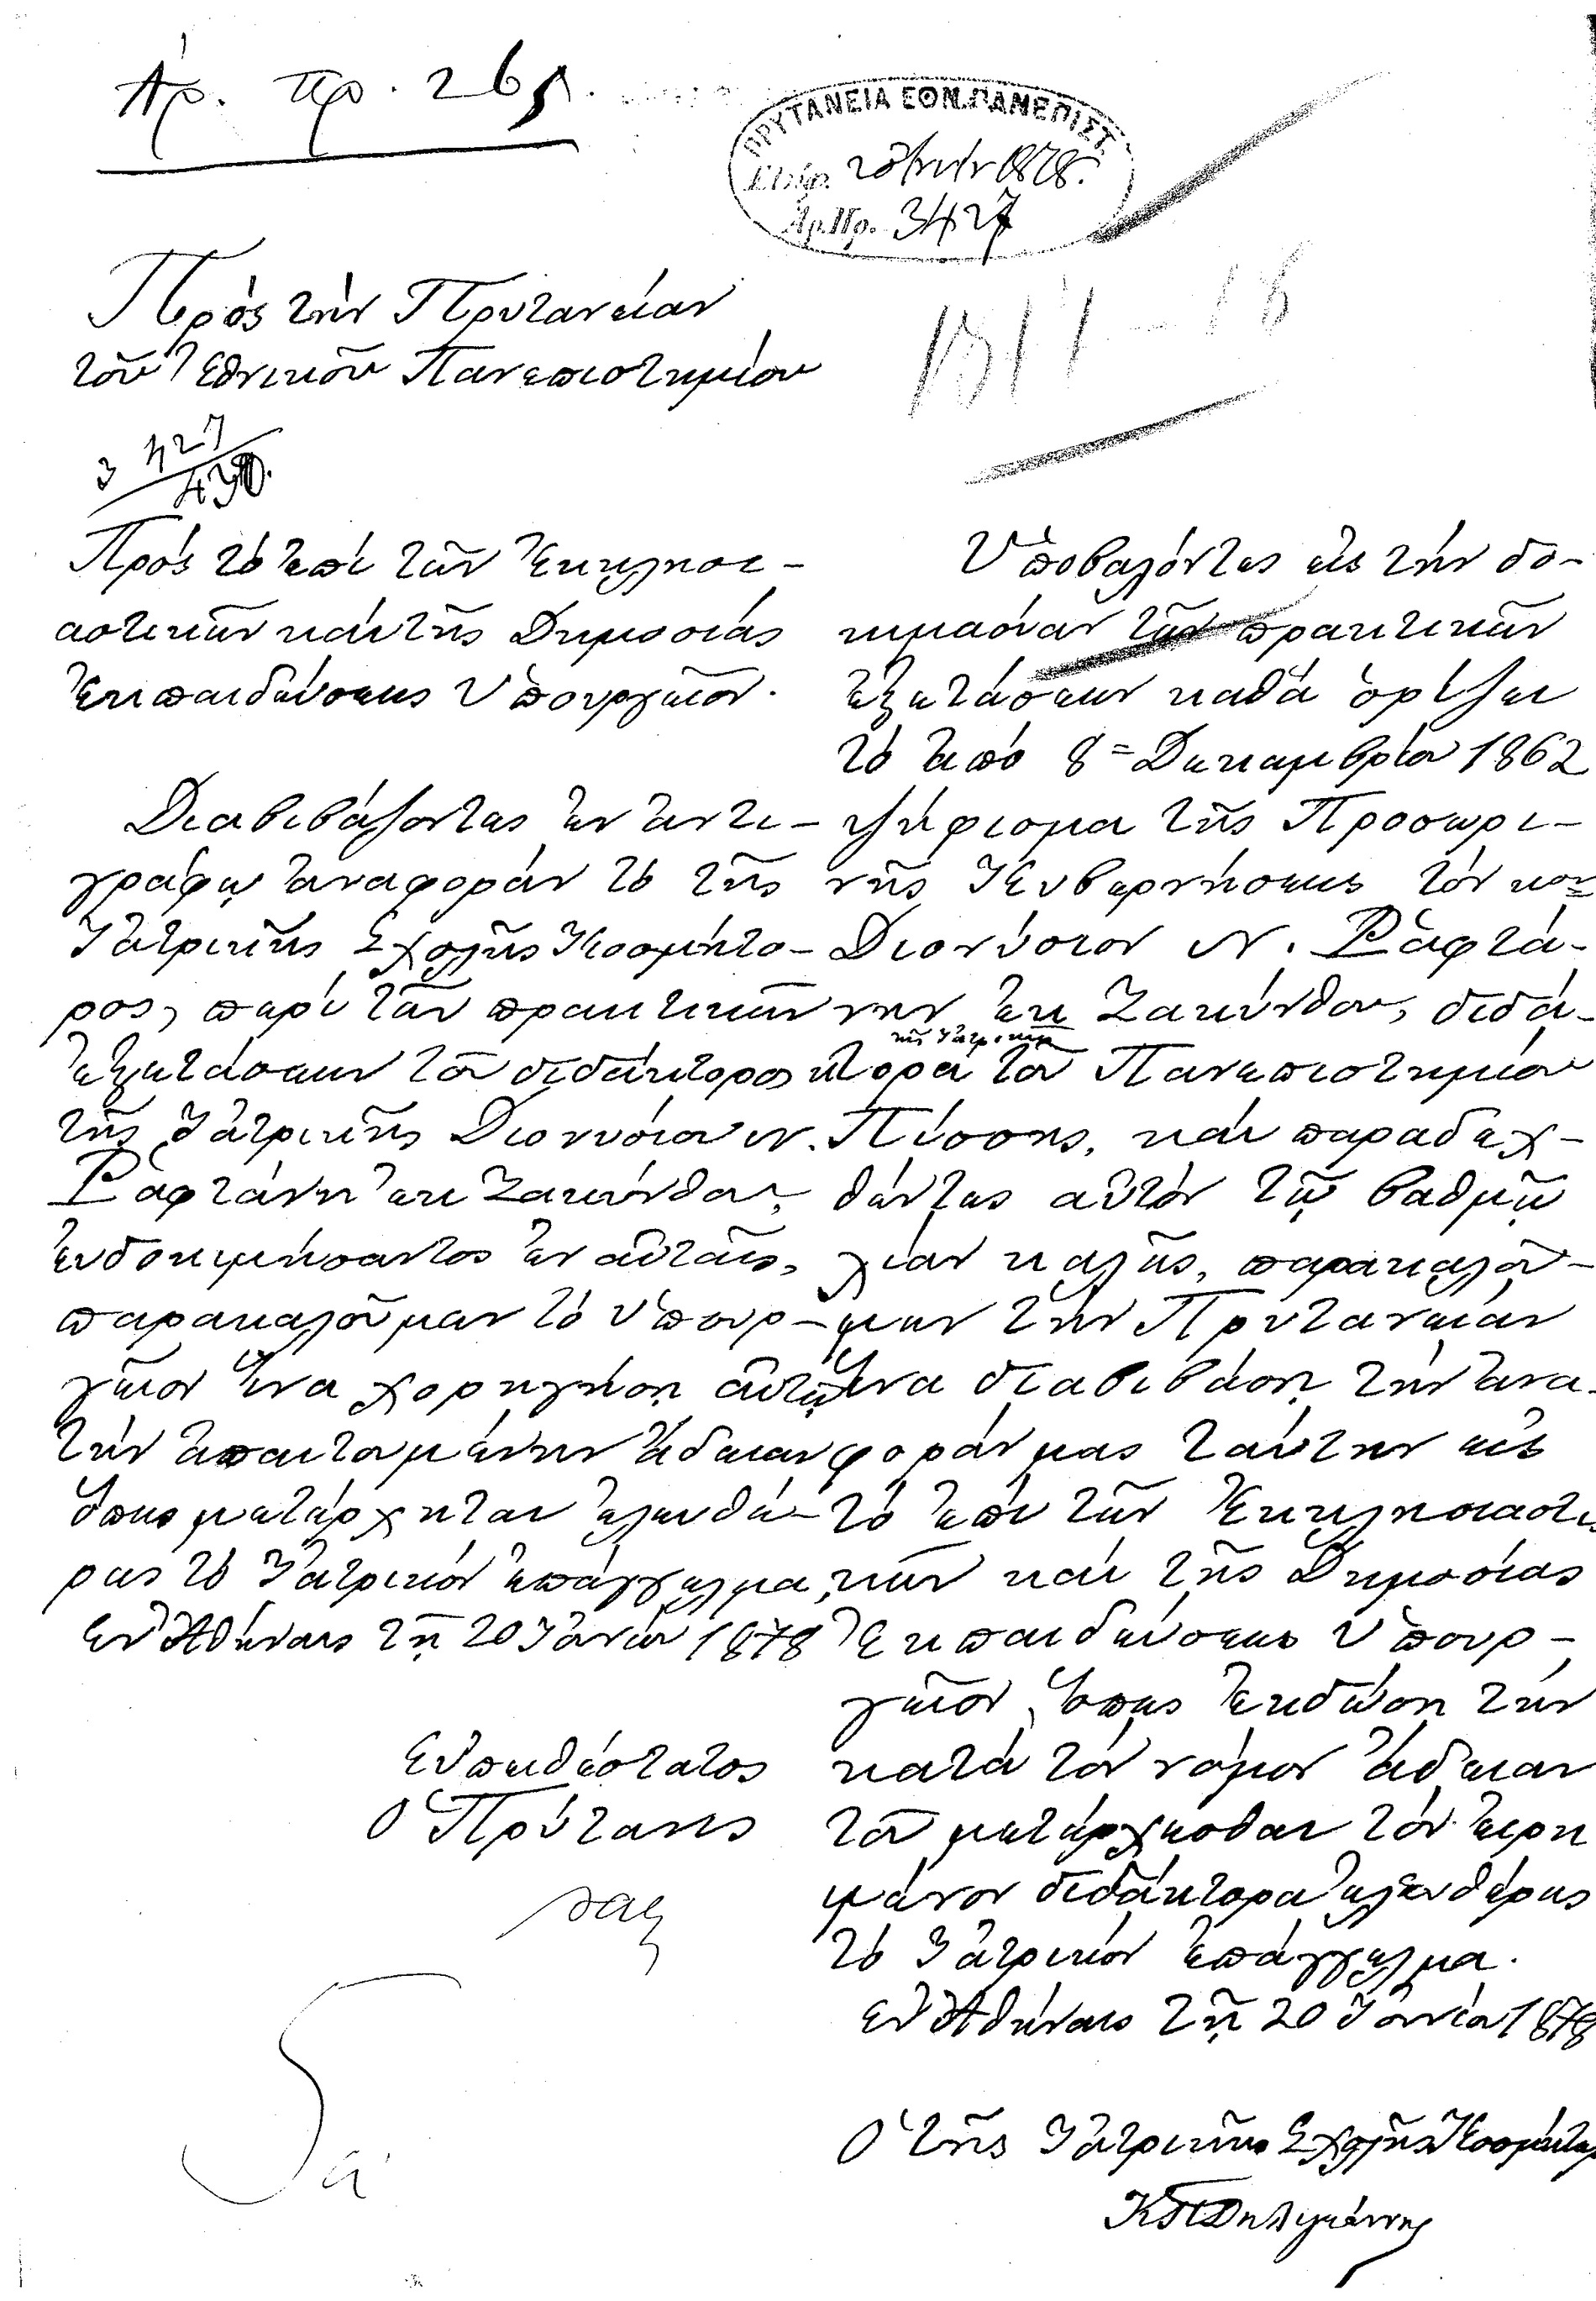 Ἀρ. πρ. 265.
ΠΡΥΤΑΝΕΙΑ ΕΘΝ.ΠΑΝΕΠΙΣΤ.
20 1878.
Ἀρ.Πρ. 3427
Πρός τήν Πρυτανείαν
τοῦ Ἐθνικοῦ Πανεπιστημίου
3427
430.
Πρός τό ἐπί τῶν Ἐκκλησι-
αστικῶν καί τῆς Δημοσίας
Ἐκπαιδεύσεως Ὑπουργεῖον.
Διαβιβάζοντες ἐν ἀντι-
γράφῳ ἀναφοράν τό τῆς
Ἰατρικῆς Σχολῆς Κοσμήτο-
ρος, περί τῶν πρακτικῶν
ἐξετάσεων τοῦ διδάκτορος
τῆς Ἰατρικῆς Διονυσίου Ν.
Ῥαφτάνη ἐκ Ζακύνθου,
εὐδοκιμήσαντος ἐν αὐταῖς,
παρακαλοῦμεν τό Ὑπουρ-
γεῖον ἵνα χορηγήσῃ αὐτῷ
τήν ἀπαιτουμένην ἄδειαν
ὅπως μετέρχηται ἐλευθέ-
ρως τό Ἰατρικόν ἐπάγγελμα,
Ἐν Ἀθήναις τῇ 20 Ἰουνίου 1878
Εὐπειθέστατος
Ὁ Πρύτανις
Ὑποβαλόντες εἰς τήν δο-
κιμασίαν τῶν πρακτικῶν
ἐξετάσεων καθά ὁρίζει
τό ἀπό 8 Δεκεμβρίου 1862
ψήφισμα τῆς Προσωρι-
νῆς Κυβερνήσεως τόν κον
Διονύσιον Ν. Ῥαφτά-
νην ἐκ Ζακύνθου, διδά-
τῆς Ἰατρικῆς
κτορα τοῦ Πανεπιστημίου
Πίσσης, καί παραδεχ-
θέντες αὐτόν τῷ βαθμῷ
λίαν καλῶς, παρακαλοῦ-
μεν τήν Πρυτανείαν
ἵνα διαβιβάσῃ τήν ἀνα-
φοράν μας ταύτην εἰς
τό ἐπί τῶν Ἐκκλησιαστι
κῶν καί τῆς Δημοσίας
Ἐκπαιδεύσεως Ὑπουρ-
γεῖον, ὅπως ἐκδώσῃ τήν
κατά τόν νόμον ἄδειαν
τοῦ μετέρχεσθαι τόν εἰρη
μένον διδάκτορα ἐλευθέρως
τό Ἰατρικόν ἐπάγγελμα.
Ἐν Ἀθήναις τῇ 20 Ἰουνίου 1878
Ὁ τῆς Ἰατρικῆς Σχολῆς Κοσμήτωρ
Δηλιγιάννης